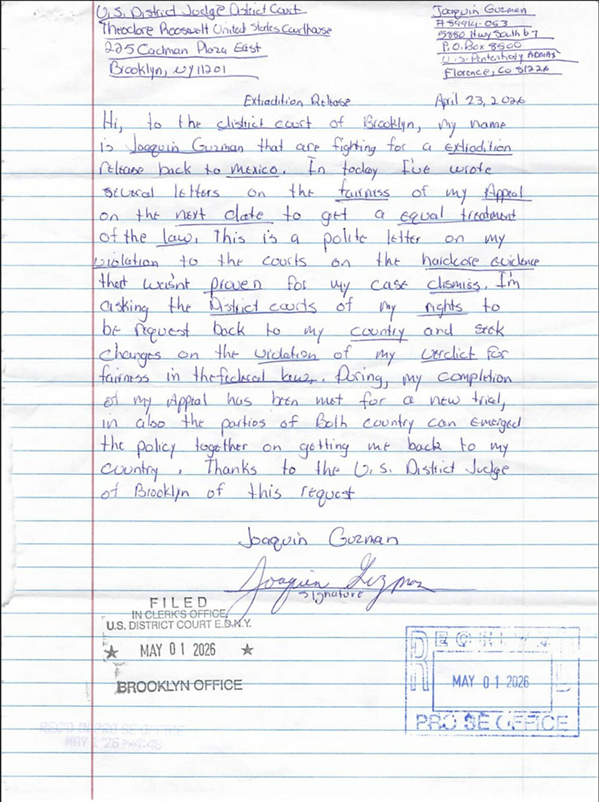 U.S. District Judge District Court
Theodore Roosevelt United States Courthouse
225 Cadman Plaza East
Brooklyn, NY 11201
Joaquin Guzman
#89914-053
5880 Hwy South 67
P.O. Box 8500
U.S. Penitentiary ADMAX
Florence, Co 81226
Extradition Release
April 23, 2026
Hi, to the district court of Brooklyn, my name
is Joaquin Guzman that are fighting for a extradition
release back to mexico. In today I've wrote
several letters on the fairness of my Appeal
on the next date to get a equal treatment
of the law. This is a polite letter on my
violation to the courts on the hardcore evidence
that wasn't proven for my case dismiss. I'm
asking the District courts of my rights to
be request back to my country and seek
changes on the violation of my verdict for
fairness in the federal law. During, my completion
of my Appeal has been met for a new trial,
in also the parties of Both country can emerged
the policy together on getting me back to my
country. Thanks to the U.S. District Judge
of Brooklyn of this request
Joaquin Guzman
Joaquin Guzman
Signature
FILED
IN CLERK'S OFFICE
U.S. DISTRICT COURT E.D.N.Y.
★ MAY 01 2026 ★
BROOKLYN OFFICE
MAY 01 2026
PRO SE OFFICE